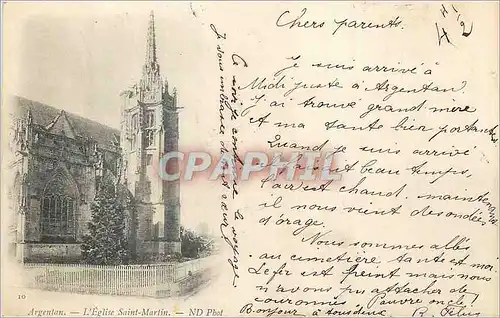 Chers parents.
Je suis arrivé à
Midi juste à Argentan.
J'ai trouvé grand mère
et ma tante bien portantes
Quand je suis arrivé
il fesait beau temps,
l'air est chaud. maintenant
il nous vient des ondées
d'orage.
Nous sommes allés
au cimetière tante et moi
Le fer est peint mais nous
n'avons pu attacher de
couronnes Pauvre oncle!
Bonjour à tous deux
Ce soir je continue le voyage
Je vous embrasse
CPARAMA
10
Argentan. — L'Église Saint-Martin. — ND Phot